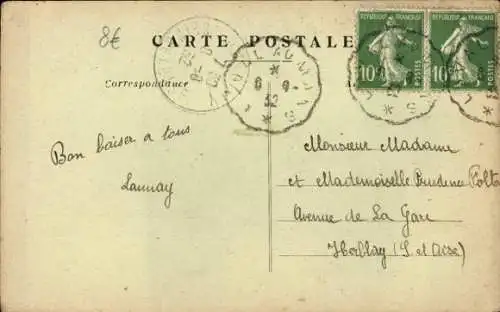 8€
CARTE POSTALE
Correspondance
REPUBLIQUE FRANÇAISE
10c
POSTES
REPUBLIQUE FRANÇAISE
10c
POSTES
LAVAL AU MANS
6 9
32
Bon baiser a tous
Launay
Monsieur Madame
et Mademoiselle Prudence
Avenue de La Gare
Herblay (S. et Oise)